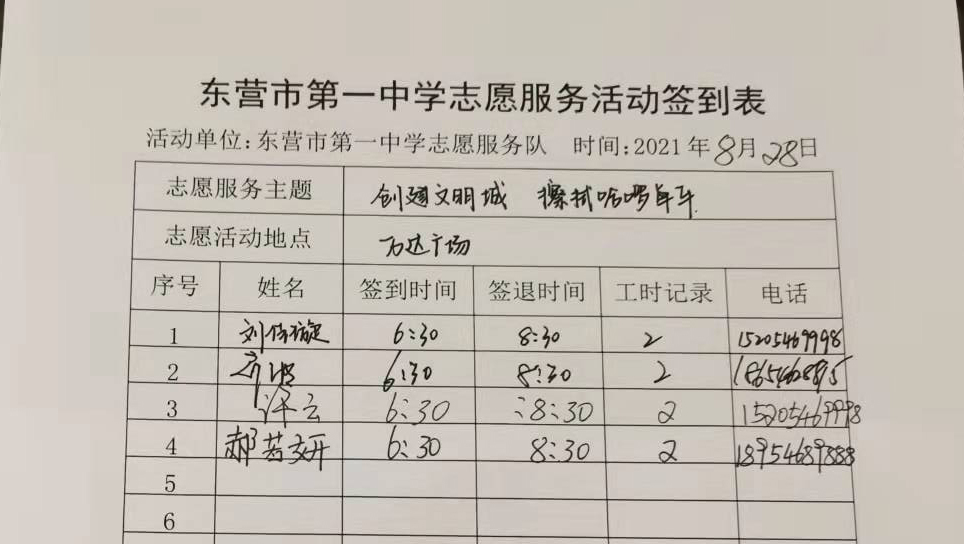 东营市第一中学志愿服务活动签到表
活动单位:东营市第一中学志愿服务队 时间:2021年8月28日
志愿服务主题 创建文明城 擦拭哈啰单车
志愿活动地点 万达广场
序号 姓名 签到时间 签退时间 工时记录 电话
1 刘 6:30 8:30 2 15205469998
2 6:30 8:30 2
3 许云 6:30 8:30 2 15205469998
4 郝若妍 6:30 8:30 2 18954689888
5
6